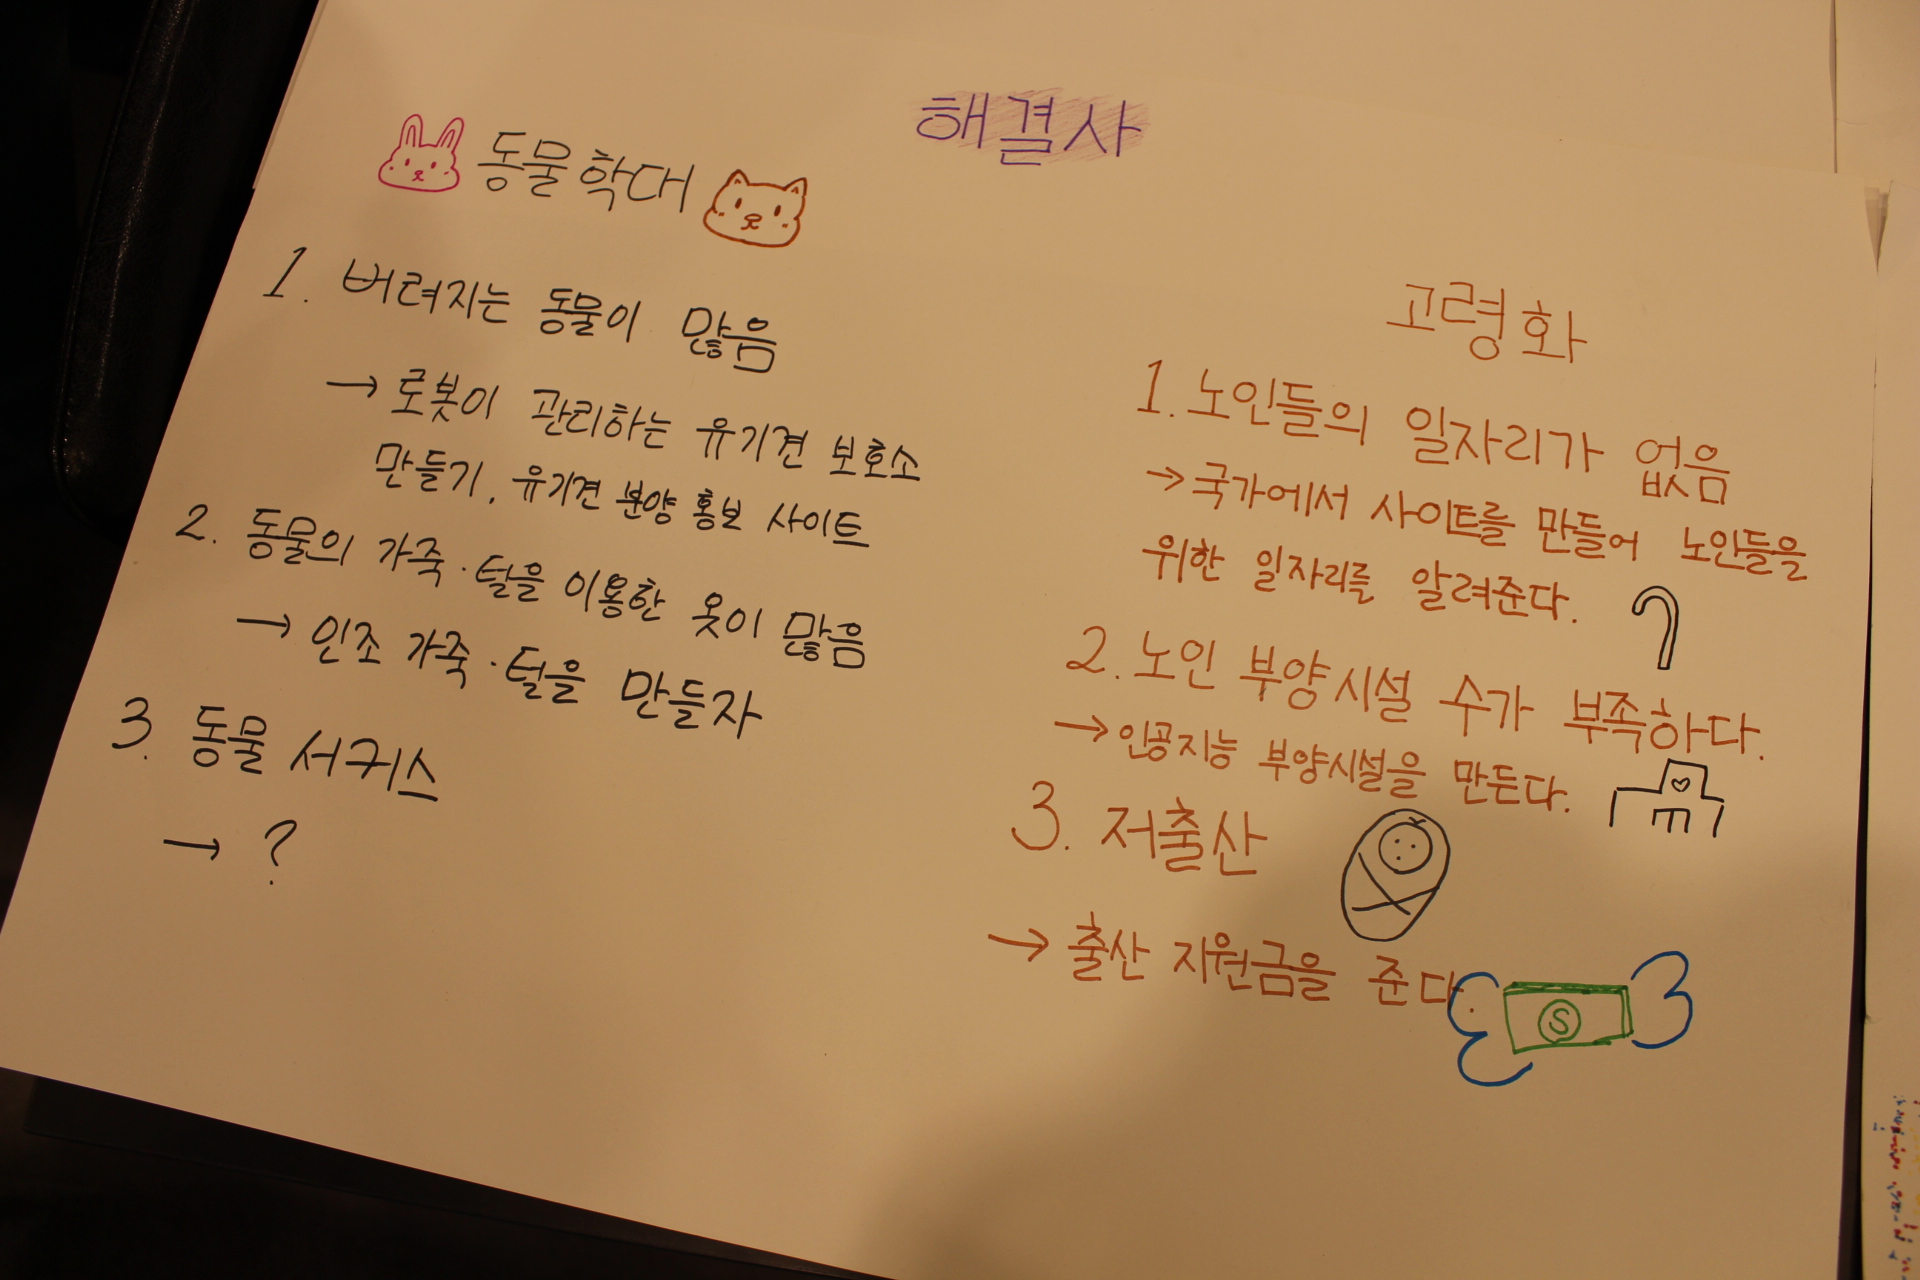 해결사
동물학대
1. 버려지는 동물이 많음
→ 로봇이 관리하는 유기견 보호소
만들기, 유기견 분양 홍보 사이트
2. 동물의 가죽·털을 이용한 옷이 많음
→ 인조 가죽·털을 만들자
3. 동물 서커스
→ ?
고령화
1. 노인들의 일자리가 없음
→ 국가에서 사이트를 만들어 노인들을
위한 일자리를 알려준다.
2. 노인 부양시설 수가 부족하다.
→ 인공지능 부양시설을 만든다.
3. 저출산
→ 출산 지원금을 준다.
S